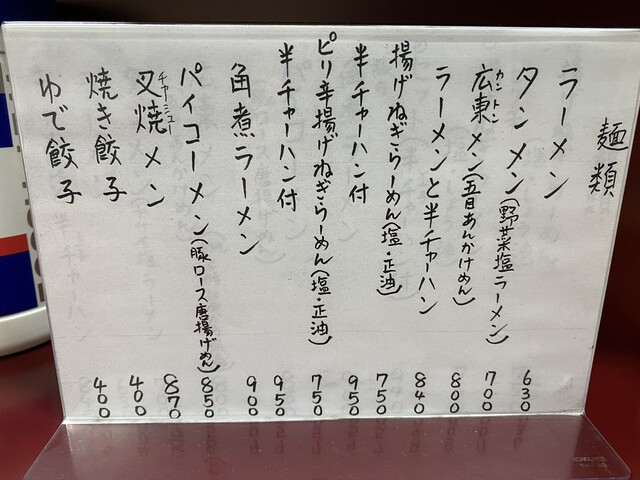 麺類
ラーメン 630
タンメン(野菜塩ラーメン) 700
広東メン(五目あんかけめん) 800
カントン
ラーメンと半チャーハン 840
揚げねぎらーめん(塩・正油) 750
半チャーハン付 950
ピリ辛揚げねぎらーめん(塩・正油) 750
半チャーハン付 950
角煮ラーメン 900
パイコーメン(豚ロース唐揚げめん) 850
叉焼メン 870
チャーシュー
焼き餃子 400
ゆで餃子 400